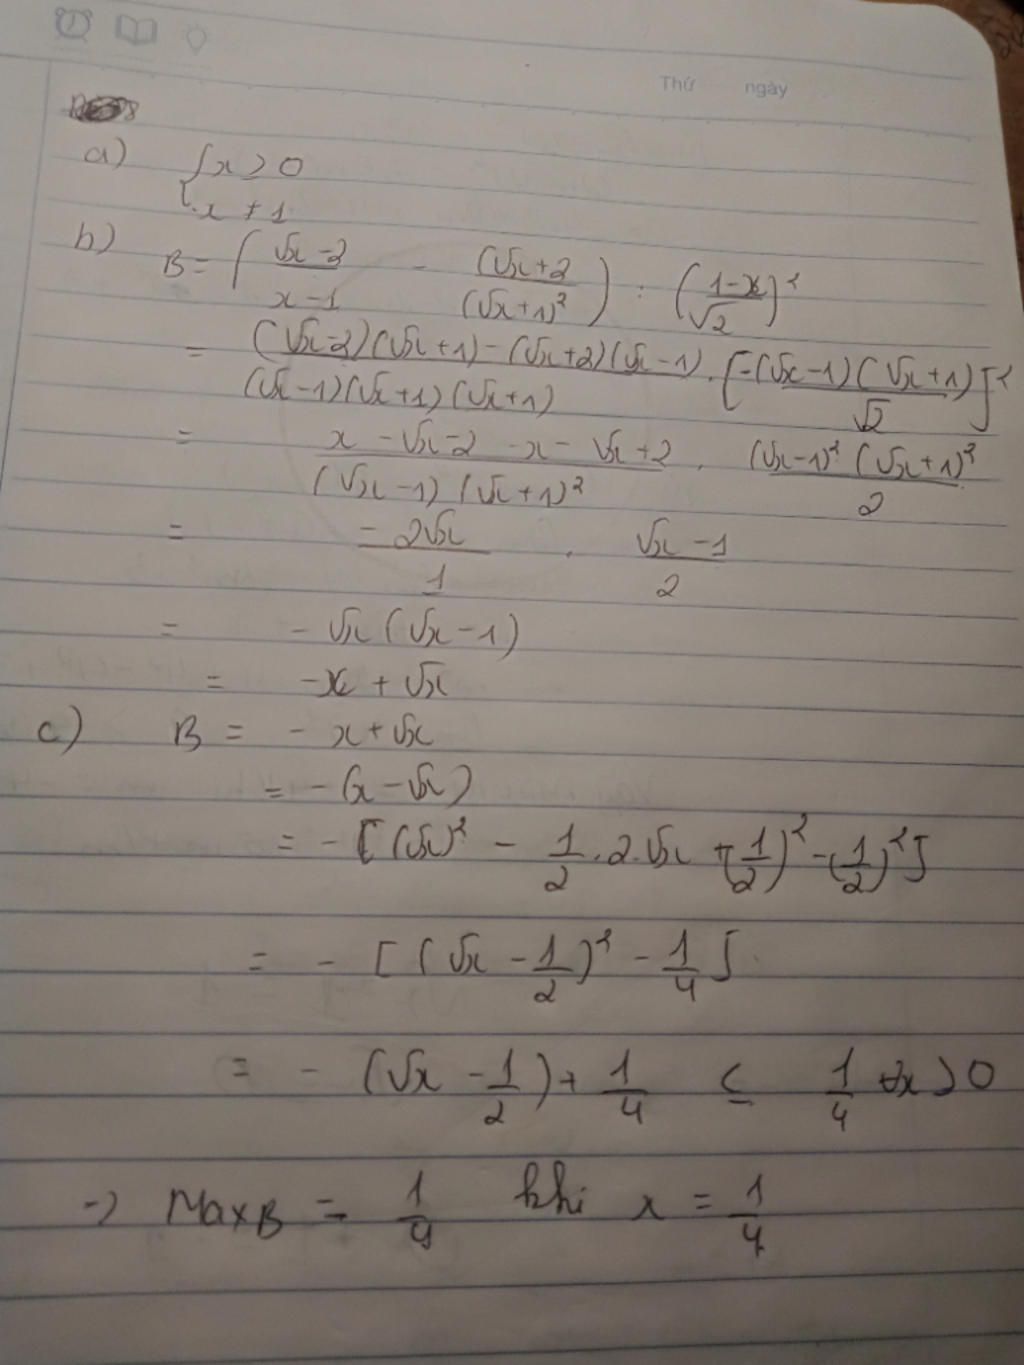 Thứ ngày
a) { x > 0
x ≠ 1
b) B = ( (√x - 2)/(x - 1) - (√x + 2)/(√x + 1)² ) : ( (1 - x)/√2 )²
= ((√x - 2)(√x + 1) - (√x + 2)(√x - 1))/((√x - 1)(√x + 1)(√x + 1)) . [ -(√x - 1)(√x + 1)/√2 ]²
= (x - √x - 2 - x - √x + 2)/((√x - 1)(√x + 1)²) . ((√x - 1)² (√x + 1)²)/2
= (-2√x)/1 . (√x - 1)/2
= -√x (√x - 1)
= -x + √x
c) B = - x + √x
= - (x - √x)
= - [ (√x)² - 1/2 . 2 . √x + (1/2)² - (1/2)² ]
= - [ (√x - 1/2)² - 1/4 ]
= - (√x - 1/2) + 1/4 ≤ 1/4 ∀x > 0
→ MaxB = 1/4 khi x = 1/4